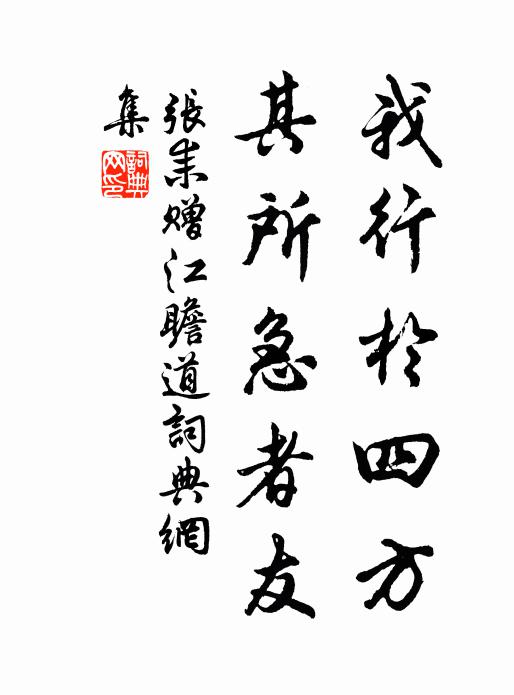 我行於四方
其所急者友
張耒贈江瞻道詞典網
集
詞典
网印